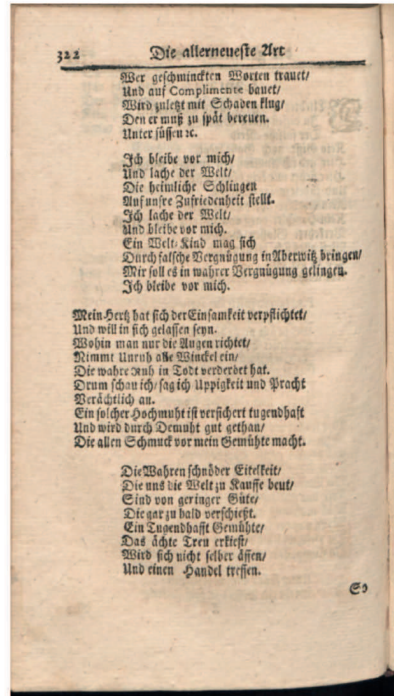 322 Die allerneueste Art
Wer geschminckten Worten trauet/
Und auf Complimente bauet/
Wird zuletzt mit Schaden klug/
Den er muß zu spät bereuen.
Unter süssen ꝛc.
Ich bleibe vor mich/
Und lache der Welt/
Die heimliche Schlingen
Auf unsre Zufriedenheit stellt.
Ich lache der Welt/
Und bleibe vor mich.
Ein Welt-Kind mag sich
Durch falsche Vergnügung in Aberwitz bringen/
Mir soll es in wahrer Vergnügung gelingen.
Ich bleibe vor mich.
Mein Hertz hat sich der Einsamkeit verpflichtet/
Und will in sich gelassen seyn.
Wohin man nur die Augen richtet/
Nimmt Unruh alle Winckel ein/
Die wahre Ruh in Todt verderbet hat.
Drum schau ich/ sag ich Uppigkeit und Pracht
Verächtlich an.
Ein solcher Hochmuht ist versichert tugendhaft
Und wird durch Demuht gut gethan/
Die allen Schmuck vor mein Gemühte macht.
Die Wahren schnöder Eitelkeit/
Die uns die Welt zu Kauffe beut/
Sind von geringer Güte/
Die gar zu bald verschießt.
Ein Tugendhafft Gemühte/
Das ächte Treu erkiest/
Wird sich nicht selber äffen/
Und einen Handel treffen.
So